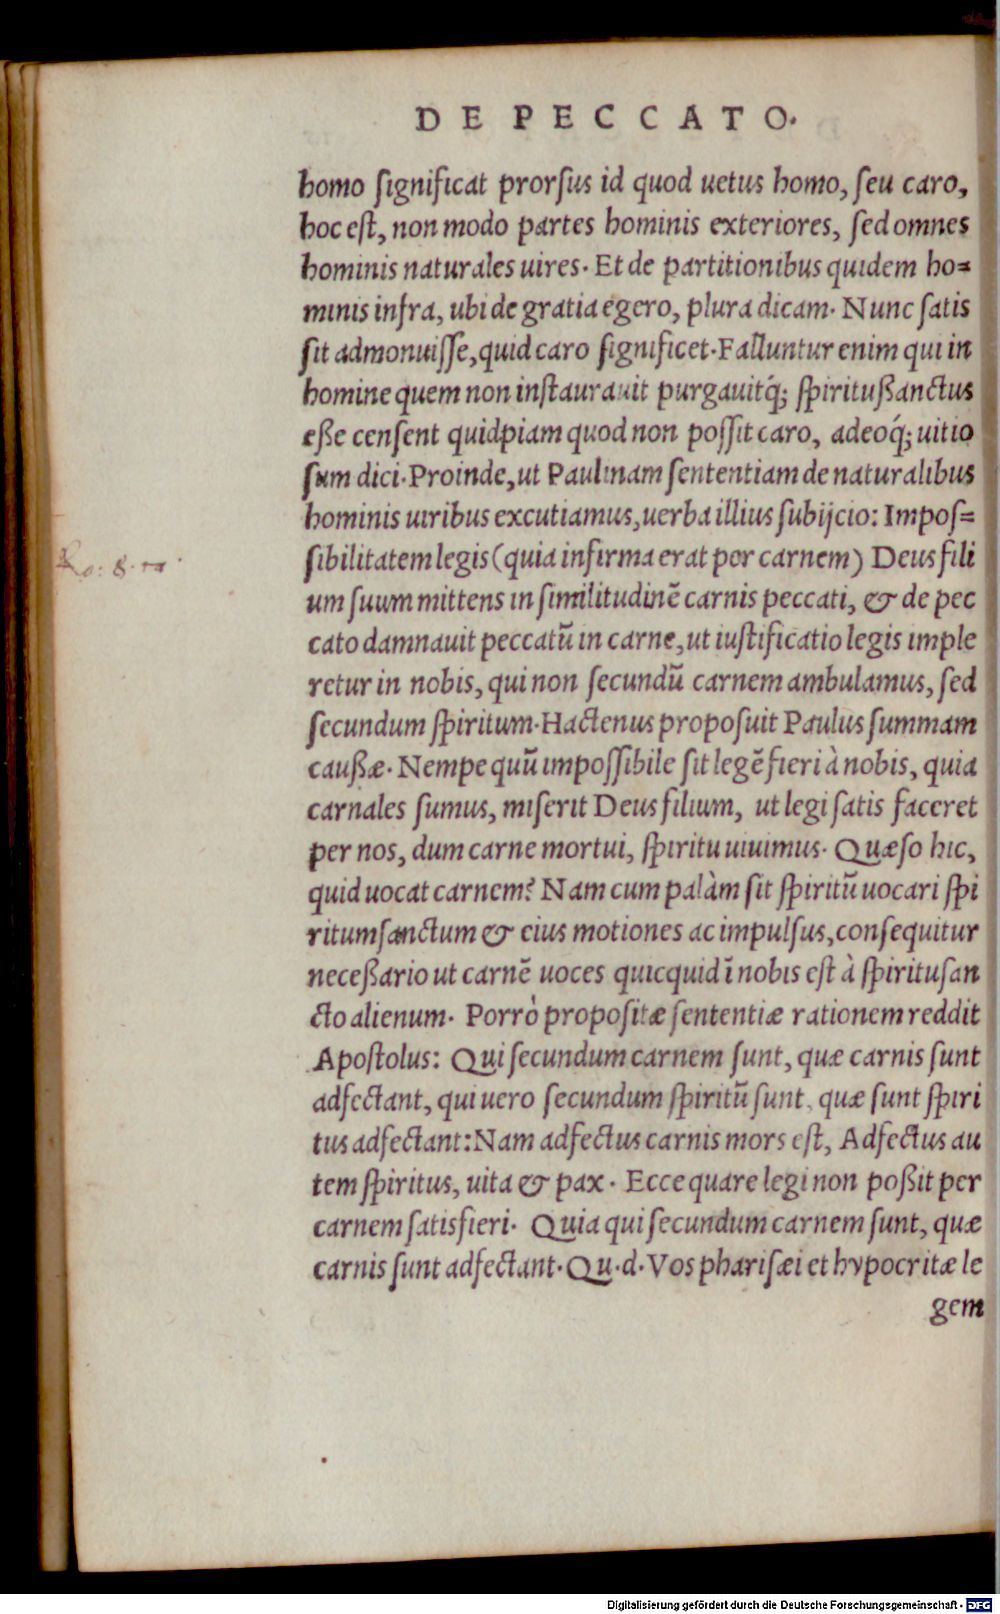 DE PECCATO.
homo ſignificat prorſus id quod uetus homo, ſeu caro,
hoc eſt, non modo partes hominis exteriores, ſed omnes
hominis naturales uires. Et de partitionibus quidem ho=
minis infra, ubi de gratia egero, plura dicam. Nunc ſatis
ſit admonuiſſe, quid caro ſignificet. Falluntur enim qui in
homine quem non inſtaurauit purgauitq́; ſpiritußanctus
eße cenſent quidpiam quod non poſſit caro, adeoq́; uitio
ſum dici. Proinde, ut Paulinam ſententiam de naturalibus
hominis uiribus excutiamus, uerba illius ſubijcio: Impoſ=
ſibilitatem legis (quia infirma erat per carnem) Deus fili
um ſuum mittens in ſimilitudinẽ carnis peccati, & de pec
cato damnauit peccatũ in carne, ut iuſtificatio legis imple
retur in nobis, qui non ſecundũ carnem ambulamus, ſed
ſecundum ſpiritum. Hactenus propoſuit Paulus ſummam
caußæ. Nempe quũ impoſſibile ſit legẽ fieri à nobis, quia
carnales ſumus, miſerit Deus filium, ut legi ſatis faceret
per nos, dum carne mortui, ſpiritu uiuimus. Quæſo hic,
quid uocat carnem? Nam cum palàm ſit ſpiritũ uocari ſpi
ritumſanctum & eius motiones ac impulſus, conſequitur
neceßario ut carnẽ uoces quicquid ĩ nobis eſt à ſpirituſan
cto alienum. Porrò propoſitæ ſententiæ rationem reddit
Apoſtolus: Qui ſecundum carnem ſunt, quæ carnis ſunt
adfectant, qui uero ſecundum ſpiritũ ſunt, quæ ſunt ſpiri
tus adfectant: Nam adfectus carnis mors eſt, Adfectus au
tem ſpiritus, uita & pax. Ecce quare legi non poßit per
carnem ſatisfieri. Quia qui ſecundum carnem ſunt, quæ
carnis ſunt adfectant. Qu.d. Vos phariſæi et hypocritæ le
gem
Ro: 8.
Digitalisierung gefördert durch die Deutsche Forschungsgemeinschaft - DFG